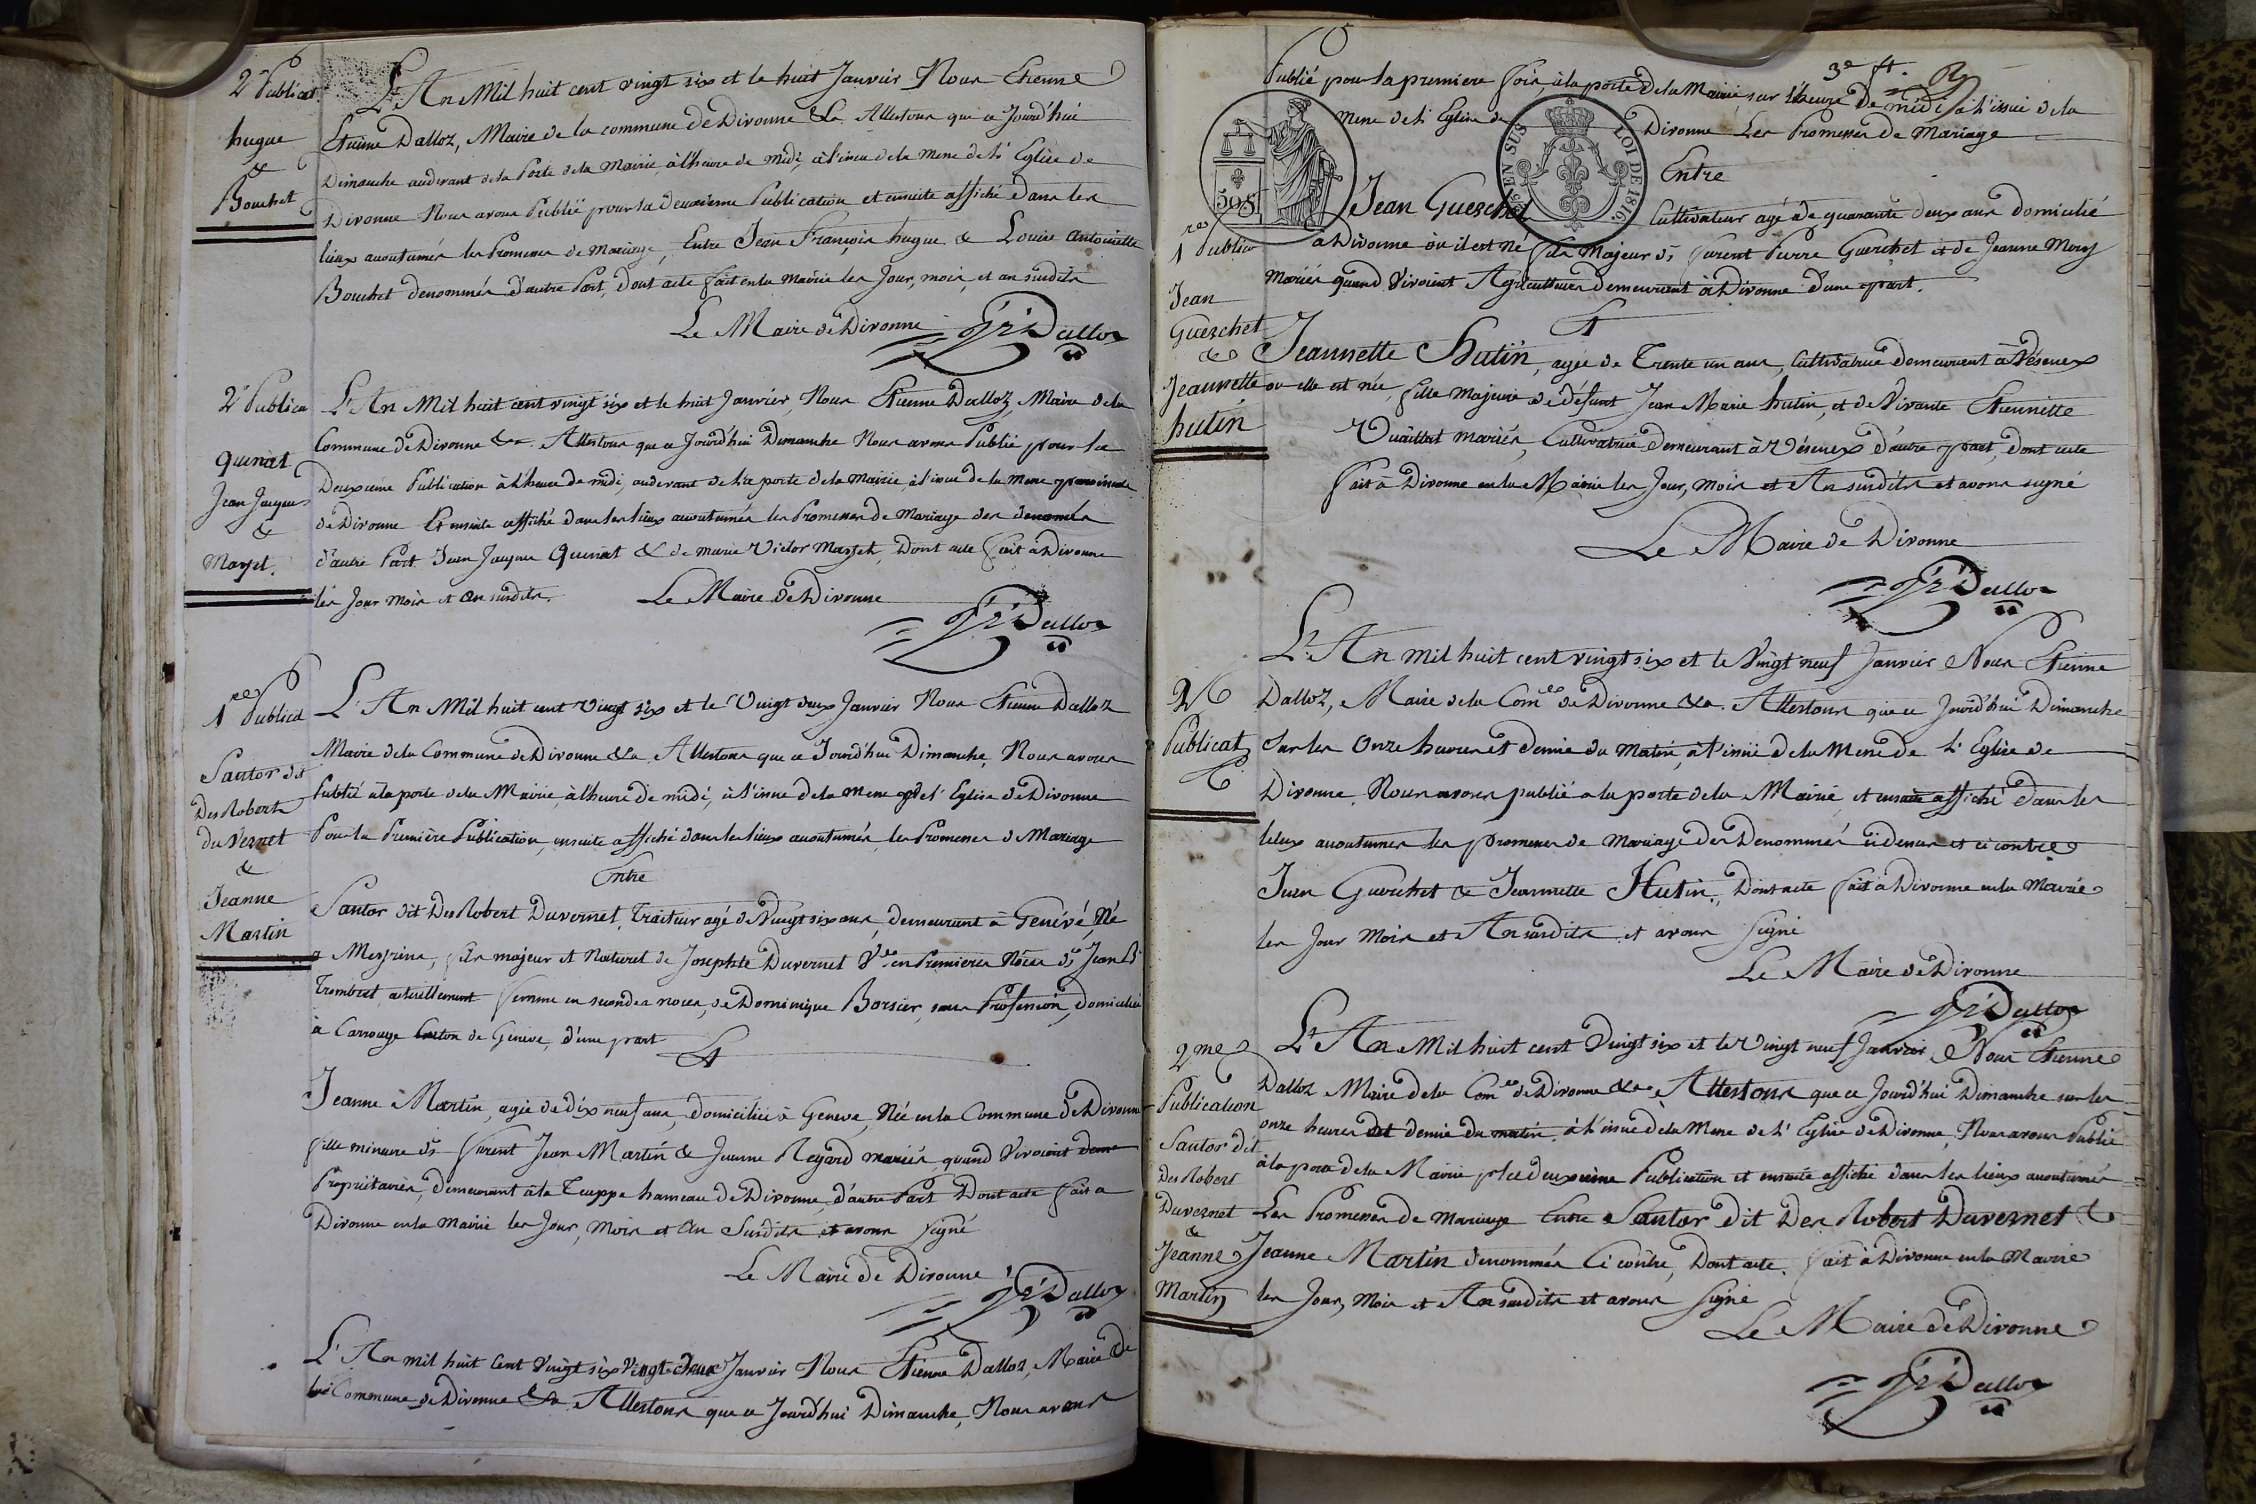 2e Publicat.
hugue
&
Bouchet
L'An Mil huit cent vingt six et le huit Janvier Nous Etienne
Etienne Dalloz, Maire de la commune de Divonne &a Attestons que ce Jourd'hui
Dimanche audevant de la Porte de la Mairie à l'heure de midi, à l'issue de la Messe de St Eglise de
Divonne Nous avons Publié pour la deuxieme Publication et ensuite affiché dans les
lieux accoutumés les Promesses de Mariage, Entre Jean François hugue & Louise Antoinette
Bouchet denommés d'autre Part, Dont acte fait en la Mairie les Jour, mois, et an susdits
Le Maire de Divonne
Dalloz
2e Publica
Quinat
Jean Jacques
&
Marjet.
L'An Mil huit cent vingt six et le huit Janvier, Nous Etienne Dalloz, Maire de la
Commune de Divonne &a. Attestons que ce Jourd'hui Dimanche Nous avons Publié pour la
Deuxieme Publication à l'heure de midi, audevant de la porte de la Mairie, à l'issue de la Messe paroissiale
de Divonne Et ensuite affiché dans les lieux accoutumés les Promesses de Mariage des denomés
d'autre Part Jean Jacques Quinat & de marie Victor Marjet, Dont acte fait à Divonne
les Jour mois et an susdits.
Le Maire de Divonne
Dalloz
1re Publica
Santor dit
Des Robert
du Vernet
&
Jeanne
Martin
L'An Mil huit cent Vingt six et le Vingt deux Janvier Nous Etienne Dalloz
Maire de la Commune de Divonne &a Attestons que ce Jourd'hui Dimanche, Nous avons
Publié à la porte de la Mairie, à l'heure de midi, à l'issue de la Messe de l'Eglise de Divonne
Pour la Première Publication, ensuite affiché dans les lieux accoutumés, les Promesses de Mariage
Entre
Santor dit Des Robert Duvernet, Traiteur agé de Vingt six ans, demeurant à Genévé, Né
a Meyrins, fils majeur et Naturel de Josephte Duvernet Vve en Premieres Noces de Jean Bt
Trombert actuellement femme en secondes noces, de Dominique Borsier, sans Profession, domicilié
à Carrouge Canton de Geneve, d'une part
Et
Jeanne Martin, agée de dix neuf ans, domiciliée à Geneve, Née en la Commune de Divonne
fille mineure de furent Jean Martin & Jeanne Regard mariés, quand Vivoient
Propriétaires, demeurant à la Truppe hameau de Divonne, d'autre Part Dont acte fait a
Divonne en la Mairie les Jour, Mois et An Susdits et avons signé
Le Maire de Divonne
Dalloz
L'An mil huit Cent Vingt six Vingt Deux Janvier Nous Etienne Dalloz, Maire de
la Commune de Divonne &a. Attestons que ce Jourd'hui Dimanche, Nous avons
3e ft.
Publié pour la premiere fois, à la porte de la Mairie sur l'heure de midi, à l'issue de la
Messe de St Eglise de Divonne Les Promesses de Mariage
EN SUS
LOI DE 1816
Entre
1res Publica
Jean
Gueschet
&
Jeannette
hutin
Jean Gueschet Cultivateur agé de quarante deux ans domicilié
a Divonne où il est né fils Majeur de furent Pierre Gueschet et de Jeanne Mory
Mariés quand Vivoient Agriculteurs demeurant à Divonne d'une part.
Et
Jeannette Hutin, agée de Trente un ans, Cultivatrice demeurant à Véseney
ou elle est née, fille majeure de défunt Jean Marie hutin, et de Vivante Etiennette
Vuaillat mariés, Cultivatrice demeurant à Véseney d'autre part, dont acte
fait à Divonne en la Mairie les Jour, Mois et An susdits et avons signé
Le Maire de Divonne
Dalloz
2e
Publicat
L'An mil huit cent vingt six et le Vingt neuf Janvier Nous Etienne
Dalloz, Maire de la Come de Divonne &a. Attestons que ce Jourd'hui Dimanche
Sur les Onze heures et demie du Matin, à l'issüe de la Messe de St Eglise de
Divonne, Nous avons publié a la porte de la Mairie, et ensuite affiché dans les
lieux accoutumés les promesses de Mariage des Denommés ci dessus et ci contre
Jean Gueschet & Jeannette Hutin, Dont acte fait à Divonne en la Mairie
les Jour Mois et An susdits et avons Signé
Le Maire de Divonne
Dalloz
2me
Publication
Santor dit
Des Robert
Duvernet
&
Jeanne
Martin
L'An Mil huit cent Vingt six et le Vingt neuf Janvier, Nous Etienne
Dalloz Maire de la Come de Divonne &a Attestons que ce Jourd'hui Dimanche sur les
onze heures et demie du matin, à l'issue de la Messe de St Eglise de Divonne, Nous avons Publié
à la porte de la Mairie pr la deuxième Publication et ensuite affiché dans les lieux accoutumés
Les Promesses de Mariage Entre Santor dit Des Robert Duvernet &
Jeanne Martin denommés Ci contre, Dont acte. fait à Divonne en la Mairie
les Jour, Mois et An susdits et avons Signé
Le Maire de Divonne
Dalloz